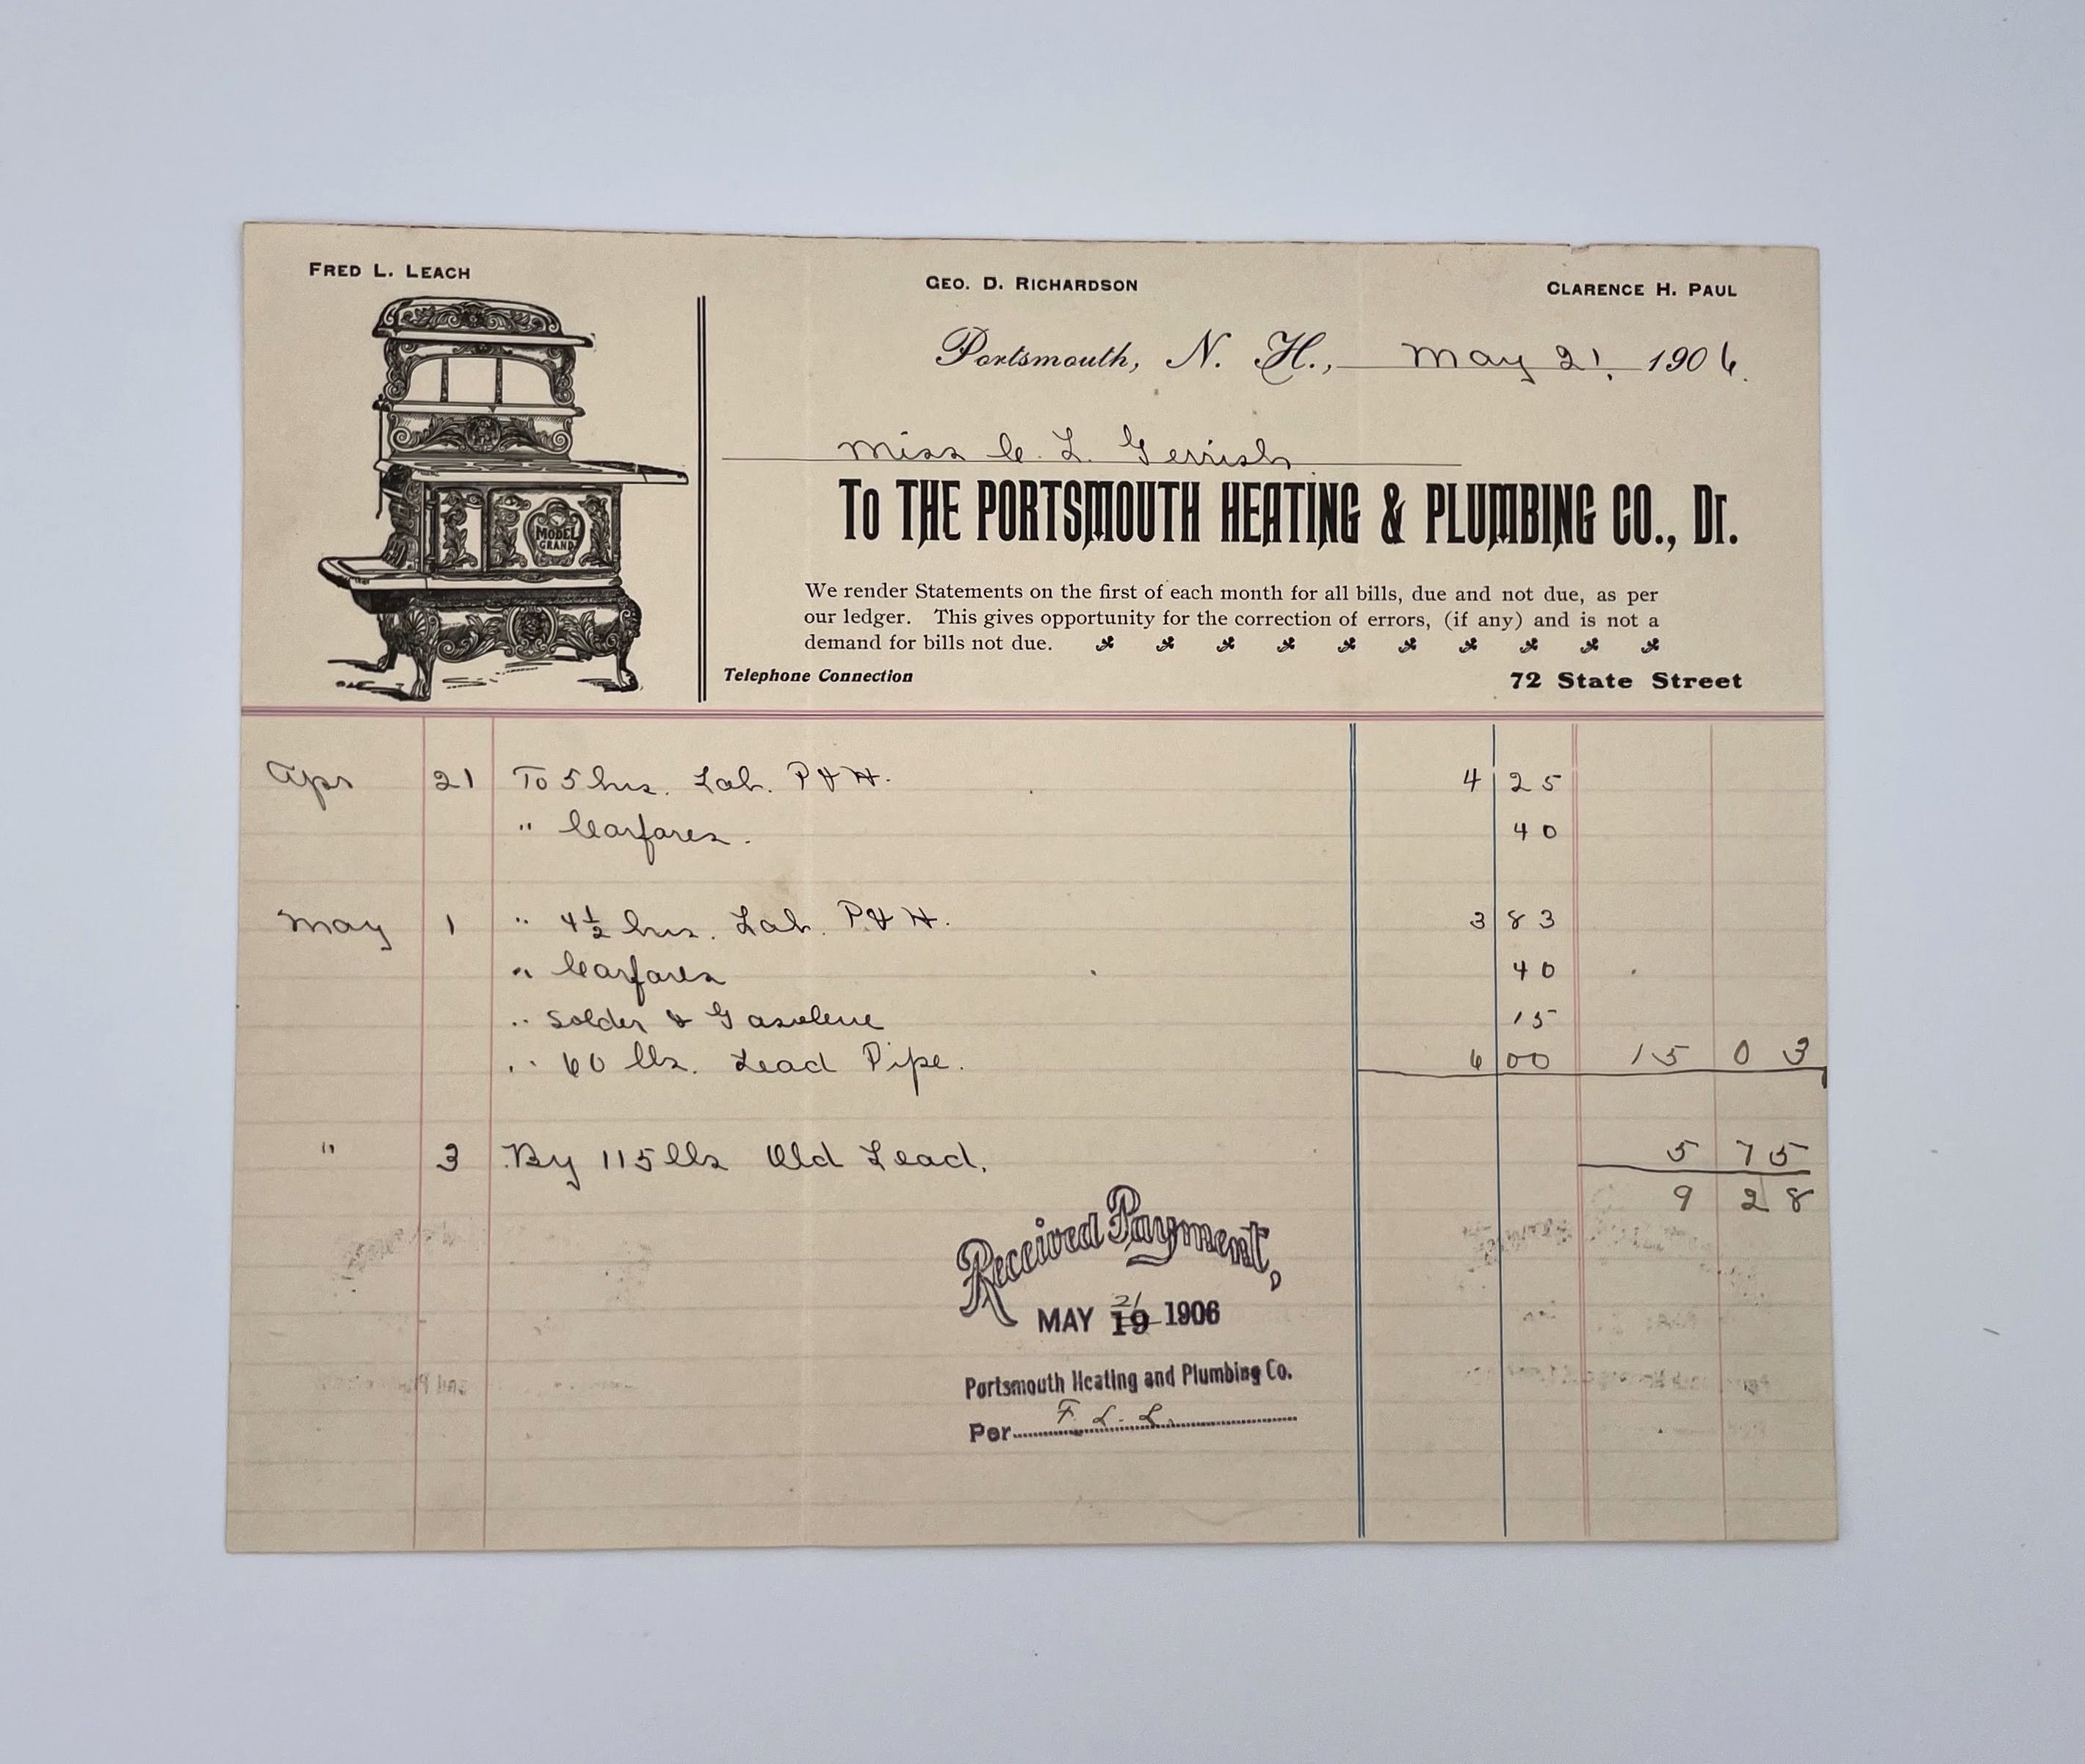 FRED L. LEACH
GEO. D. RICHARDSON
CLARENCE H. PAUL
Portsmouth, N. H., May 21, 1906.
Miss C. L. Gerrish
To THE PORTSMOUTH HEATING & PLUMBING CO., Dr.
MODEL
GRAND
We render Statements on the first of each month for all bills, due and not due, as per
our ledger. This gives opportunity for the correction of errors, (if any) and is not a
demand for bills not due.
Telephone Connection
72 State Street
Apr 21 To 5 hrs. Lab. P & H. 4 25
" Carfares. 40
May 1 " 4½ hrs. Lab. P & H. 3 83
" Carfares 40
" Solder & Gasolene 15
" 60 lbs. Lead Pipe. 6 00 15 03
" 3 By 115 lbs Old Lead. 5 75
9 28
Received Payment,
21
MAY 19 1906
Portsmouth Heating and Plumbing Co.
Per F. L. L.